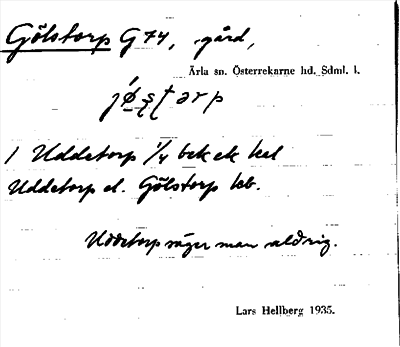 Gölstorp G 74, gård,
Ärla sn. Österrekarne hd. Sdml. l.
1 Uddetorp 1/4 bek ek kal
Uddetorp el. Gölstorp kb.
Uddetorp säger man aldrig.
Lars Hellberg 1935.